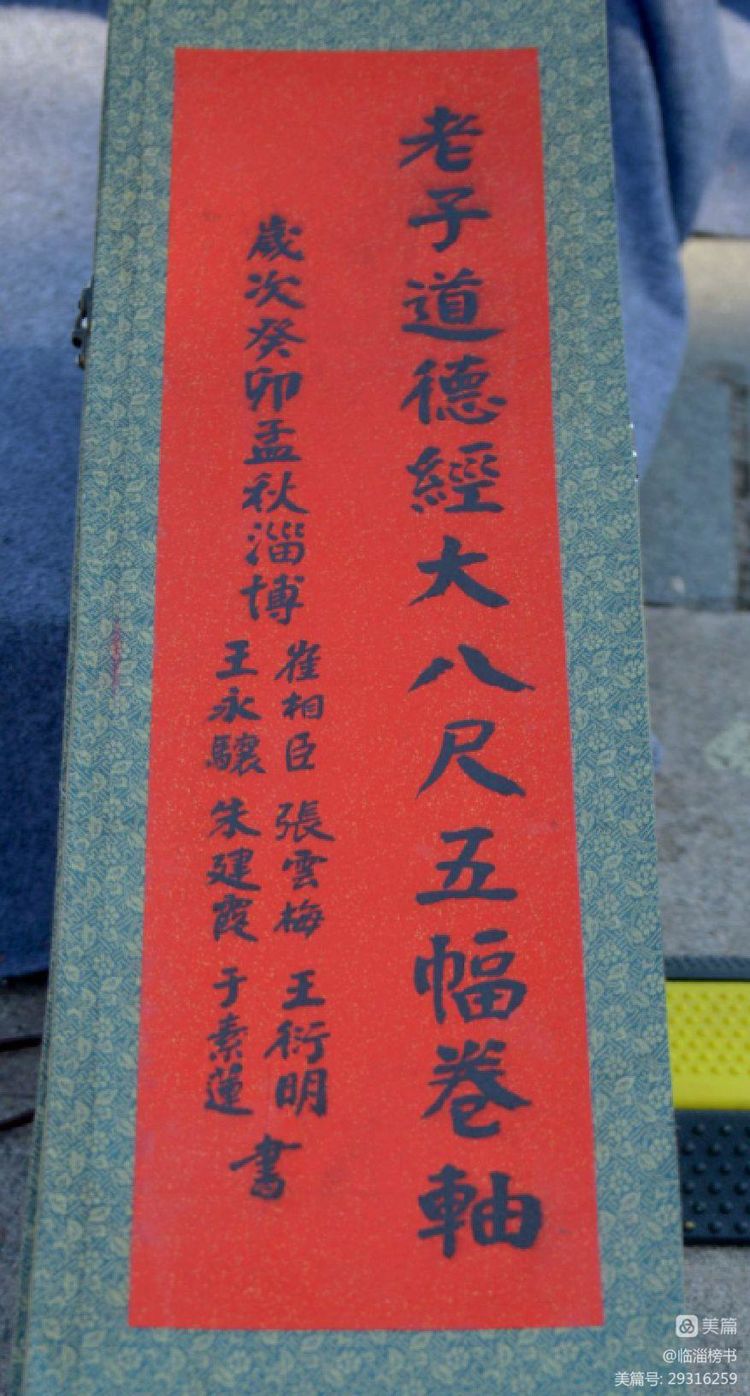 老子道德經大八尺五幅卷軸
歲次癸卯孟秋淄博
崔相臣 張雲梅 王衍明
王永驤 朱建霞 于素蓮
書
美篇
@临淄榜书
美篇号: 29316259